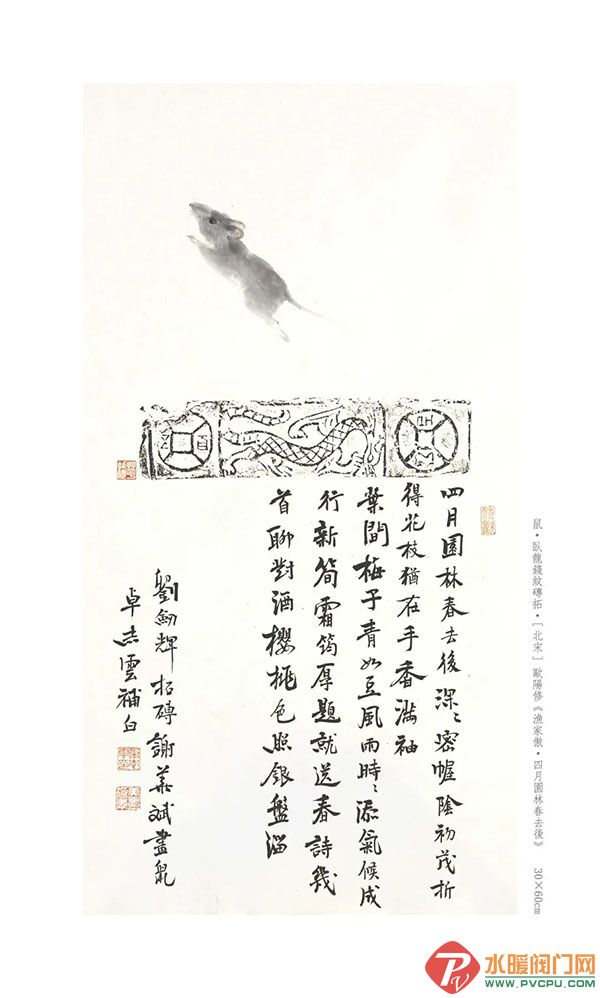 四月園林春去後深〻密幄陰初茂折
得花枝猶在手香滿袖
葉間梅子青如豆風雨時〻添氣候成
行新筍霜筠厚題就送春詩幾
首聊對酒櫻桃色照銀盤溜
劉釼輝拓磚謝華斌畫鼠
卓志雲補白
鼠·臥龍錢紋磚拓·［北宋］歐陽修《漁家傲·四月園林春去後》 30×60cm
水暖阀门网
WWW.PVCPU.COM